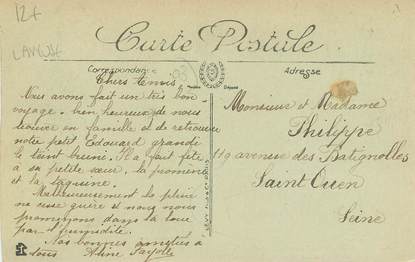 12 f
Carte Postale
Correspondance
Adresse
Chers Amis
Nous avons fait un très bon
voyage, bien heureux de nous
trouver en famille et de retrouver
notre petit Edouard grandi
le teint bruni. Il a fait fête
a sa petite sœur, la promener
et la taquine.
Malheureusement le plein
ne cesse guère et nous nous
promenons dans la boue
par l'humidité.
Nos bonnes amitiés à
tous Aline
Monsieur et Madame
Philippe
119 avenue des Batignolles
Saint Ouen
Seine